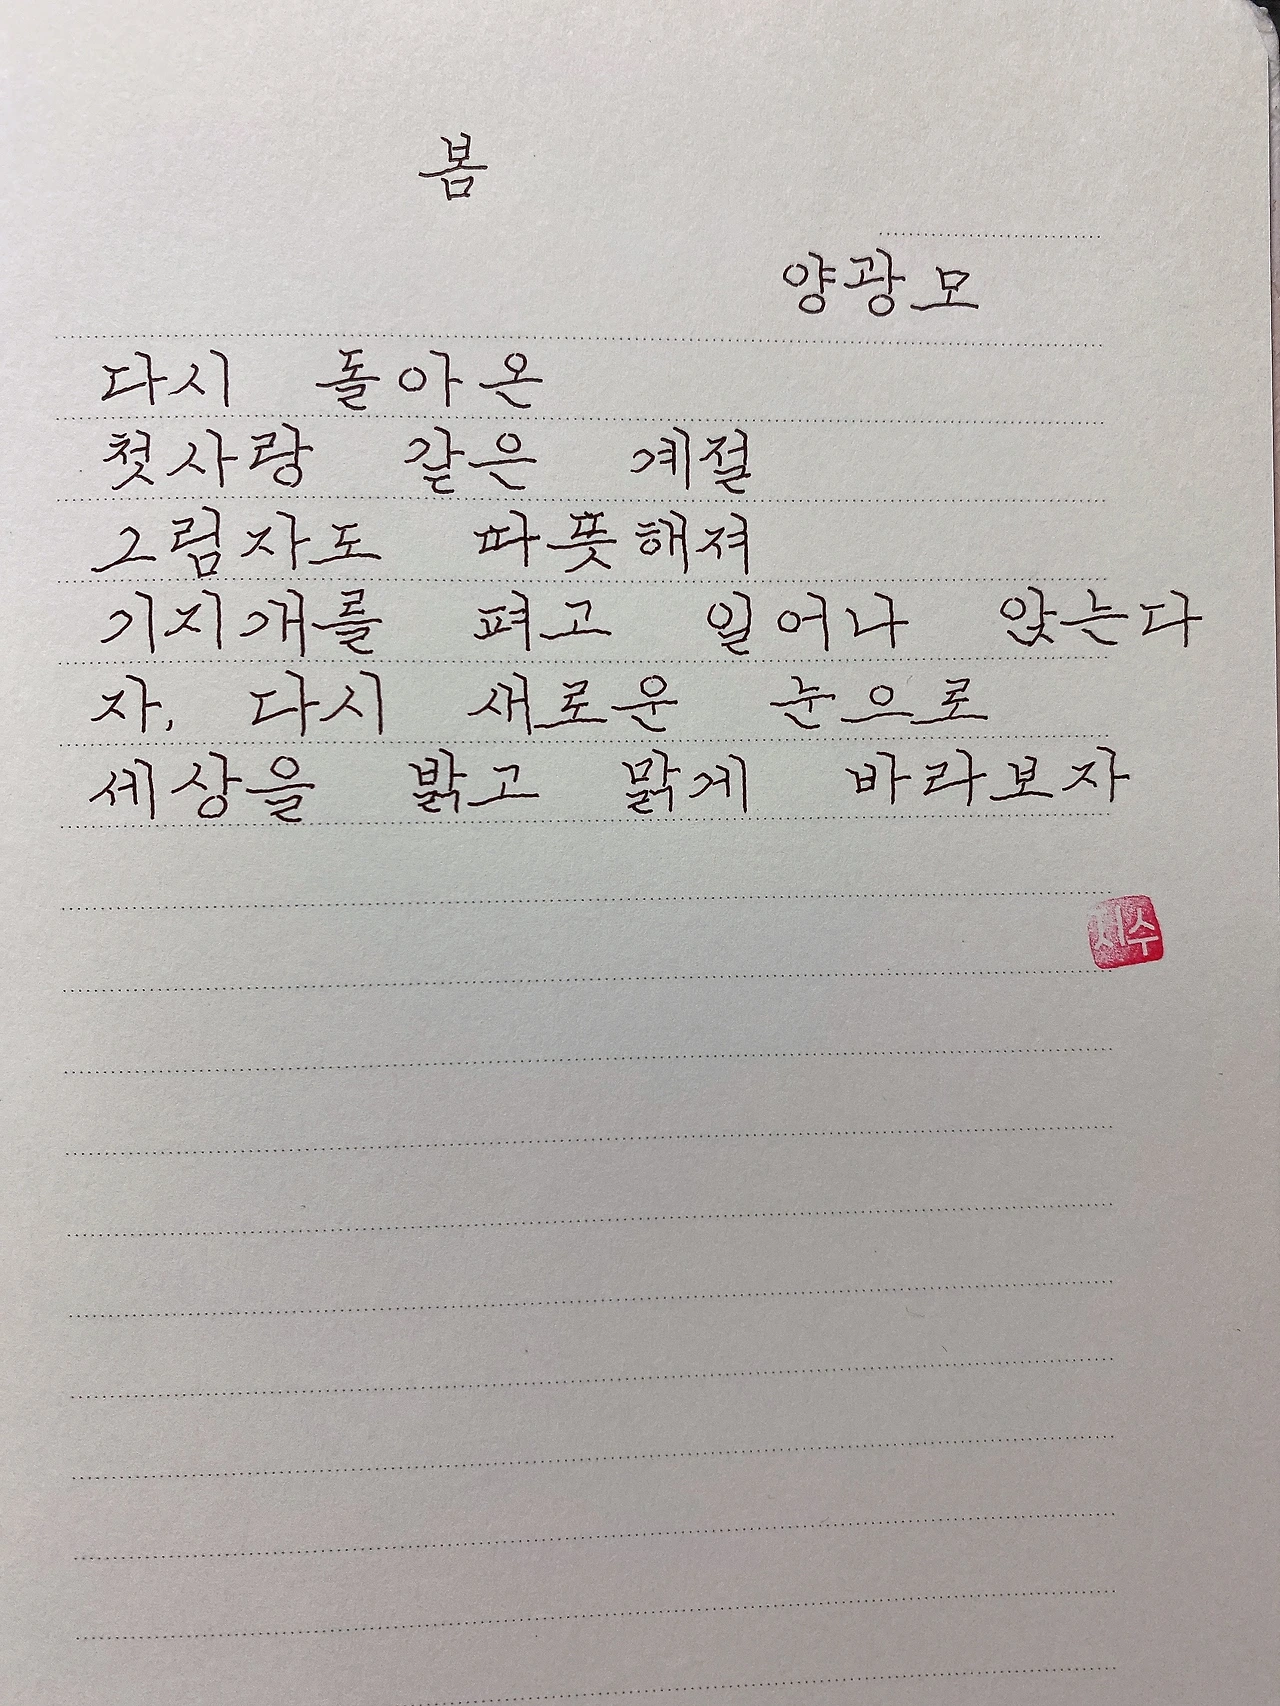 봄
양광모
다시 돌아온
첫사랑 같은 계절
그림자도 따뜻해져
기지개를 펴고 일어나 앉는다
자, 다시 새로운 눈으로
세상을 밝고 맑게 바라보자